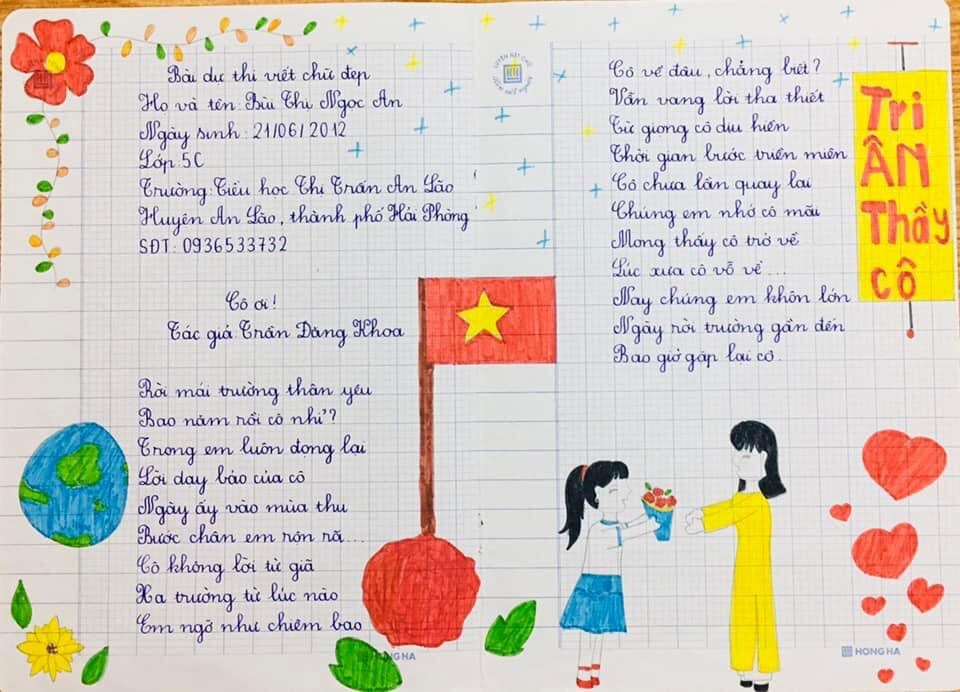 Bài dự thi viết chữ đẹp
Họ và tên: Bùi Thị Ngọc An
Ngày sinh: 21/06/2012
Lớp 5C
Trường Tiểu học Thị Trấn An Lão
Huyện An Lão, thành phố Hải Phòng
SĐT: 0936533732
Cô ơi!
Tác giả: Trần Đăng Khoa
Rời mái trường thân yêu
Bao năm rồi cô nhỉ?
Trong em luôn đọng lại
Lời dạy bảo của cô
Ngày ấy vào mùa thu
Bước chân em rộn rã...
Cô không lời từ giã
Xa trường từ lúc nào
Em ngỡ như chiêm bao
HONG HA
Cô về đâu, chẳng biết?
Vẫn vang lời tha thiết
Từ giọng cô dịu hiền
Thời gian bước triền miên
Cô chưa lần quay lại
Chúng em nhớ cô mãi
Mong thấy cô trở về
Lúc xưa cô vỗ về...
Nay chúng em khôn lớn
Ngày rời trường gần đến
Bao giờ gặp lại cô
Tri
ÂN
Thầy
cô
HONG HA